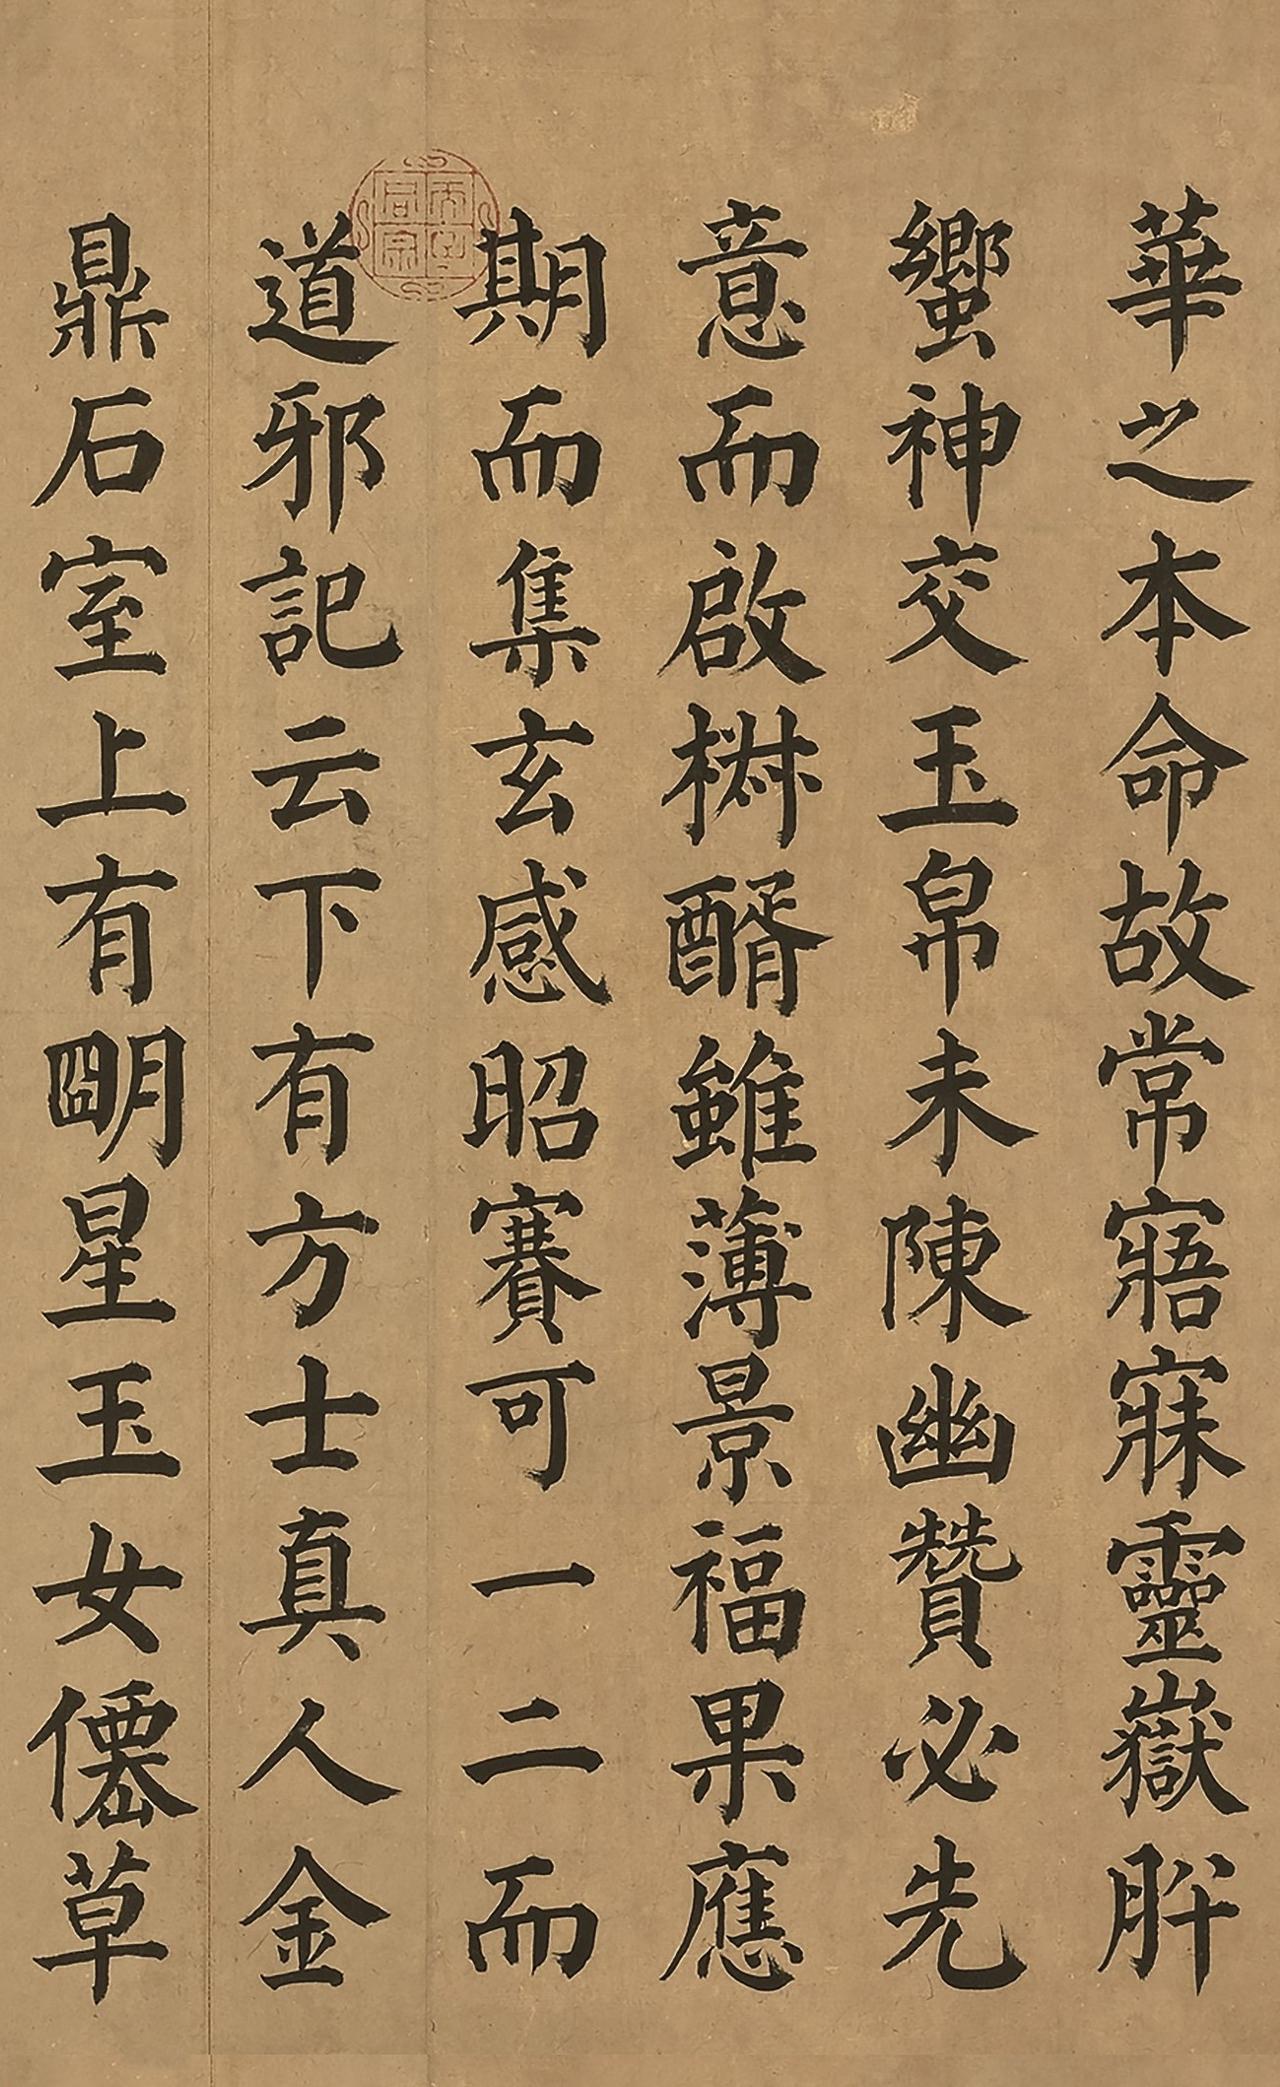 華之本命故常寤寐靈嶽肸
蠁神交玉帛未陳幽贊必先
意而啟椒醑雖薄景福果應
期而集玄感昭賽可一二而
道邪記云下有方士真人金
鼎石室上有朙星玉女僊草